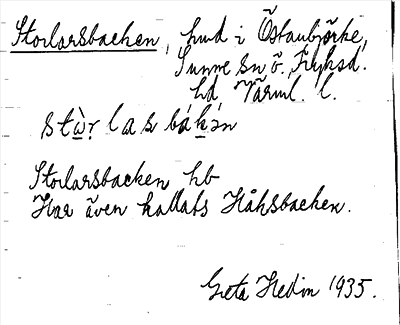 Storlarsbacken, hmd i Östanbjörke,
Sunne sn ö. Fryksd.
hd, Värml. l.
stẁr̤ las bák̲ən
Storlarsbacken hb
Har även kallats Håksbacken.
Greta Hedin 1935.